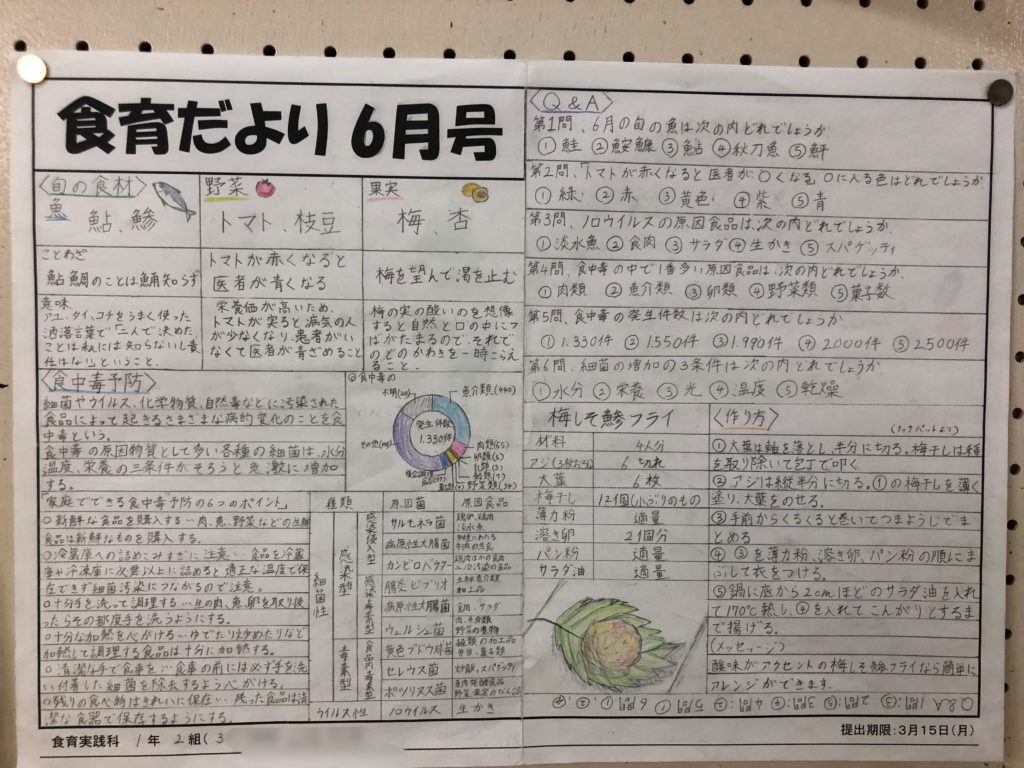 食育だより 6月号
〈旬の食材〉
魚
鮎、鰺
野菜
トマト、枝豆
果実
梅、杏
ことわざ
鮎鯛のことは鯒知らず
トマトが赤くなると
医者が青くなる
梅を望んで渇を止む
意味
アユ、タイ、コチをうまく使った
洒落言葉で「二人で決めた
ことは私には知らないし責
任はない」ということ。
栄養価が高いため、
トマトが実ると病気の人
が少なくなり、患者がい
なくて医者が青ざめること
梅の実の酸いのを想像
すると自然と口の中につ
ばがたまるので、それで
のどのかわきを一時こらえ
ること。
〈食中毒予防〉
細菌やウイルス、化学物質、自然毒などに汚染された
食品によって起きるさまざまな病的変化のことを食
中毒という。
食中毒の原因物質として多い各種の細菌は、水分
温度、栄養の三条件がそろうと急激に増加
する。
◎食中毒の
発生件数
1,330件
魚介類(440)
肉類(65)
野菜類(34)
「家庭でできる食中毒予防の6つのポイント」
○新鮮な食品を購入する…肉、魚、野菜などの生鮮
食品は新鮮なものを購入する。
○冷蔵庫への詰めこみすぎに注意…食品を冷蔵
庫や冷凍庫に必要以上に詰めると適正な温度で保
存できず細菌汚染につながるので注意。
○十分手を洗って調理する…生の肉、魚、卵を取り扱
ったらその都度手を洗うようにする。
○十分な加熱を心がける…ゆでたり炒めたりなど
加熱して調理する食品は十分に加熱する。
○清潔な手で食事を…食事の前には必ず手を洗
い付着した細菌を除去するよう心がける。
○残りの食べ物はきれいに保存…残った食品は清
潔な食器で保存するようにする。
種類 原因菌 原因食品
細菌性
感染型
感染侵入型
サルモネラ菌
病原性大腸菌
カンピロバクター
感染毒素型
腸炎ビブリオ 生鮮魚介類 加工品
病原性大腸菌
ウェルシュ菌
毒素型
食品内毒素型
黄色ブドウ球菌
セレウス菌 炒飯、スパゲッティ
ボツリヌス菌
ウイルス性 ノロウイルス 生かき
食育実践科 1年 2組(3
〈Q&A〉
第1問、6月の旬の魚は次の内どれでしょうか
①鮭 ②鮟鱇 ③鮎 ④秋刀魚 ⑤鮃
第2問、「トマトが赤くなると医者が〇くなる」〇に入る色はどれでしょうか
①緑 ②赤 ③黄色 ④紫 ⑤青
第3問、ノロウイルスの原因食品は次の内どれでしょうか。
①淡水魚 ②食肉 ③サラダ ④生かき ⑤スパゲッティ
第4問、食中毒の中で1番多い原因食品は、次の内どれでしょうか。
①肉類 ②魚介類 ③卵類 ④野菜類 ⑤菓子数
第5問、食中毒の発生件数は次の内どれでしょうか
①1.330件 ②1550件 ③1.990件 ④2000件 ⑤2500件
第6問、細菌の増加の3条件は次の内どれでしょうか
①水分 ②栄養 ③光 ④温度 ⑤乾燥
梅しそ鰺フライ
材料 4人分
アジ(3枚おろし) 6切れ
大葉 6枚
梅干し 12個(小ぶりのもの
薄力粉 適量
溶き卵 2個分
パン粉 適量
サラダ油 適量
〈作り方〉
(クックパッドより)
①大葉は軸を落とし、半分に切る。梅干しは種
を取り除いて包丁で叩く
②アジは縦半分に切る。①の梅干しを薄く
塗り、大葉をのせる。
③手前からくるくると巻いてつまようじでま
とめる
④③を薄力粉、溶き卵、パン粉の順にま
ぶして衣をつける。
⑤鍋に底から2cmほどのサラダ油を入れ
て170℃熱し、④を入れてこんがりとするま
で揚げる。
(メッセージ)
酸味がアクセントの梅しそ鰺フライなら簡単に
アレンジができます。
提出期限:3月15日(月)